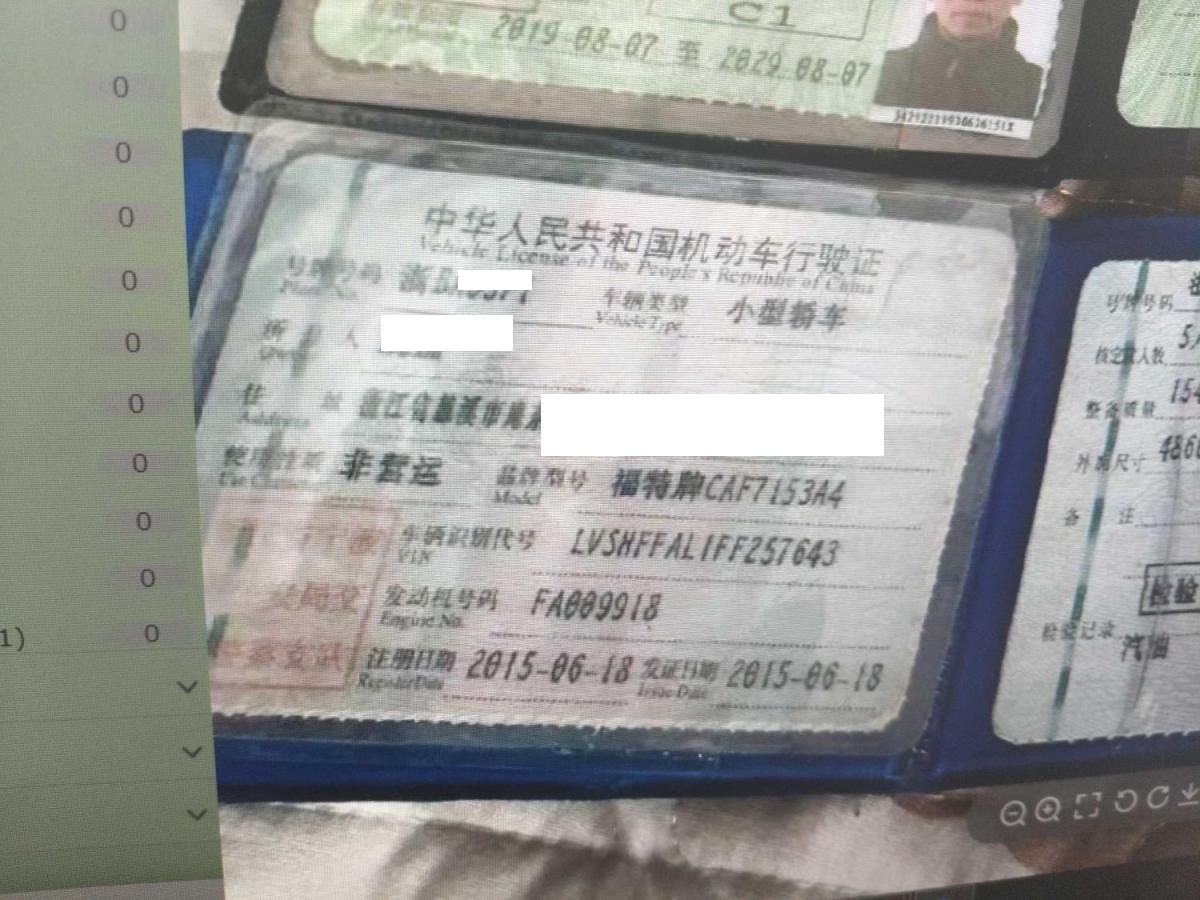 0
0
0
0
0
0
0
0
0
0
0
1)
C1
2019-08-07 至 2029-08-07
中华人民共和国机动车行驶证
Vehicle License of the People's Republic of China
号牌号码 浙B
Plate No.
车辆类型 小型轿车
Vehicle Type
人
住 址 浙江省慈溪市
Address
使用性质 非营运
Use Character
品牌型号 福特牌CAF7153A4
Model
车辆识别代号 LVSHFFAL1FF257643
VIN
发动机号码 FA009918
Engine No.
注册日期 2015-06-18 发证日期 2015-06-18
Register Date Issue Date
号牌号码
核定载人数 5
整备质量 154
外廓尺寸 486
备 注
检验
检验记录
汽油